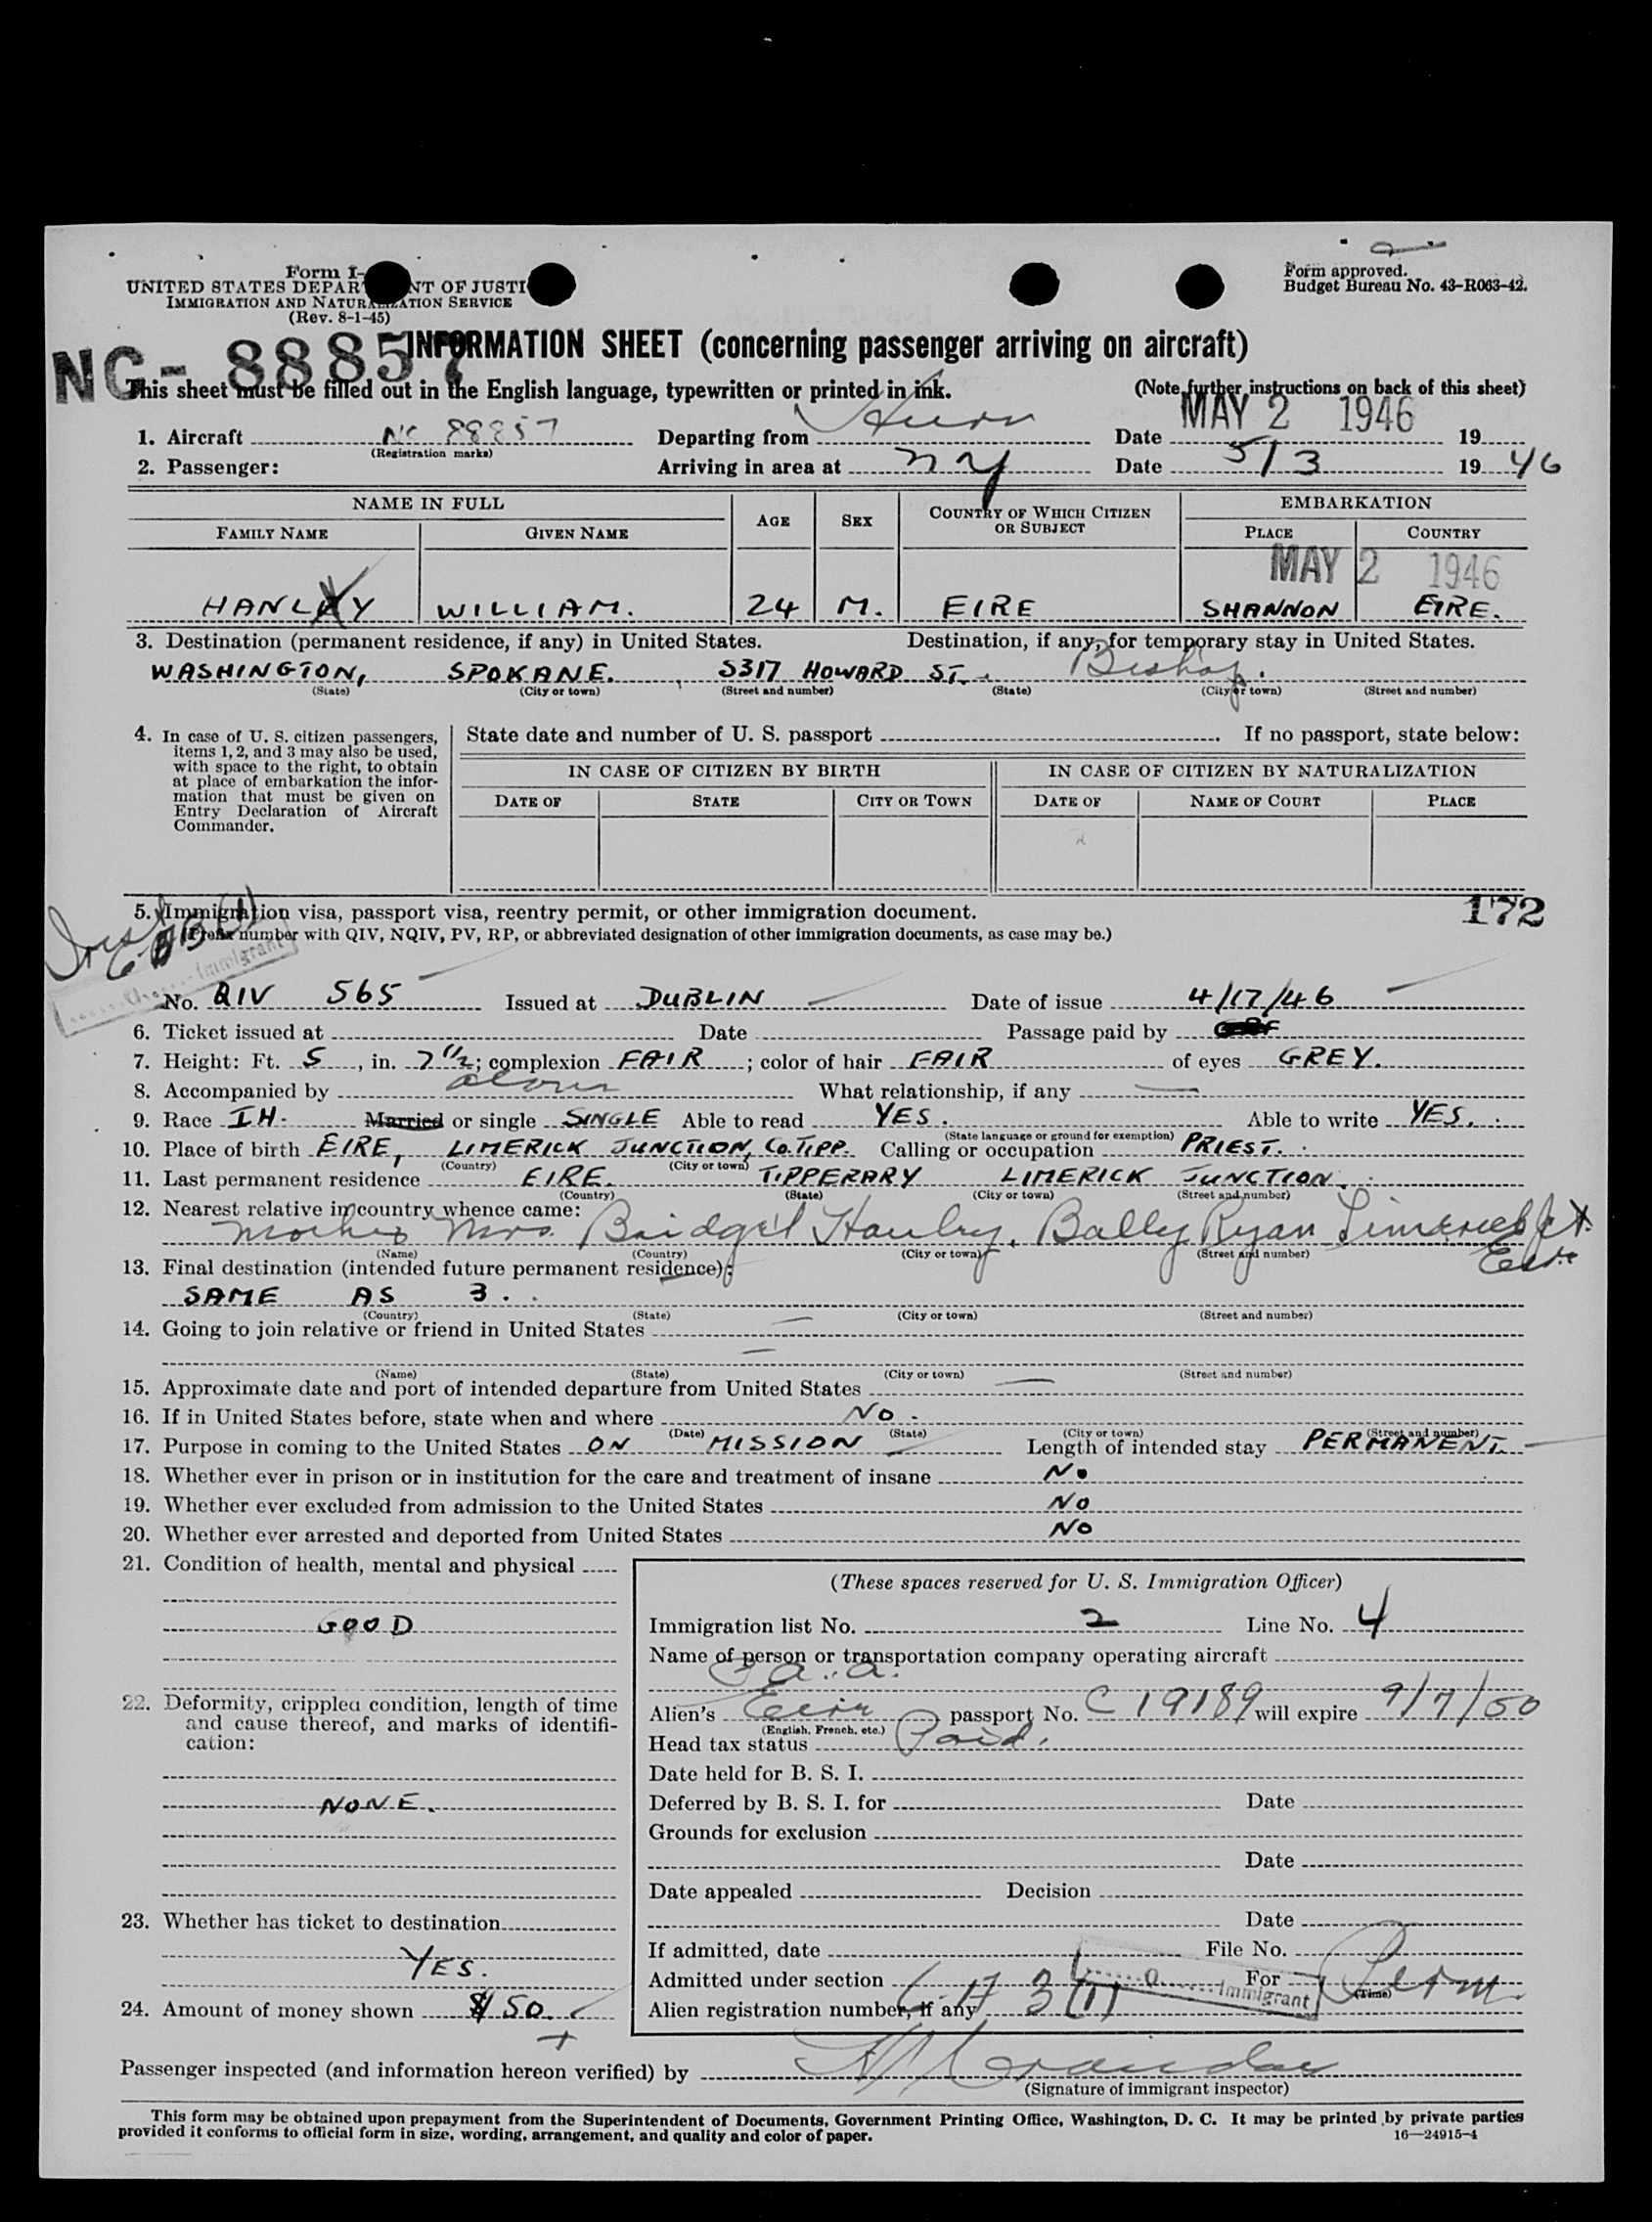 Form I-
UNITED STATES DEPAR NT OF JUSTI
IMMIGRATION AND NATUR ATION SERVICE
(Rev. 8-1-45)
Form approved.
Budget Bureau No. 43-R063-42.
NC- 88857
INFORMATION SHEET (concerning passenger arriving on aircraft)
This sheet must be filled out in the English language, typewritten or printed in ink. (Note further instructions on back of this sheet)
1. Aircraft NC 88857 Departing from Date MAY 2 1946 19
(Registration marks)
2. Passenger: Arriving in area at NY Date 5/3 1946
NAME IN FULL AGE SEX COUNTRY OF WHICH CITIZEN OR SUBJECT EMBARKATION
FAMILY NAME GIVEN NAME PLACE COUNTRY
MAY 2 1946
HANLEY WILLIAM. 24 M. EIRE SHANNON EIRE.
3. Destination (permanent residence, if any) in United States. Destination, if any, for temporary stay in United States.
WASHINGTON, SPOKANE. 5317 HOWARD ST. Bishop.
(State) (City or town) (Street and number) (State) (City or town) (Street and number)
4. In case of U. S. citizen passengers,
items 1, 2, and 3 may also be used,
with space to the right, to obtain
at place of embarkation the infor-
mation that must be given on
Entry Declaration of Aircraft
Commander.
State date and number of U. S. passport . If no passport, state below:
IN CASE OF CITIZEN BY BIRTH IN CASE OF CITIZEN BY NATURALIZATION
DATE OF STATE CITY OR TOWN DATE OF NAME OF COURT PLACE
172
5. Immigration visa, passport visa, reentry permit, or other immigration document.
(Prefix number with QIV, NQIV, PV, RP, or abbreviated designation of other immigration documents, as case may be.)
Immigrant
No. QIV 565 Issued at DUBLIN Date of issue 4/17/46
6. Ticket issued at Date Passage paid by
7. Height: Ft. 5, in. 7 1/2; complexion FAIR; color of hair FAIR of eyes GREY.
8. Accompanied by alone What relationship, if any —
9. Race IH. Married or single SINGLE Able to read YES. Able to write YES.
(State language or ground for exemption)
10. Place of birth EIRE, LIMERICK JUNCTION, Co. TIPP. Calling or occupation PRIEST.
(Country) (City or town)
11. Last permanent residence EIRE. TIPPERARY LIMERICK JUNCTION.
(Country) (State) (City or town) (Street and number)
12. Nearest relative in country whence came:
Mother Mrs. Bridget Hanley, Bally Ryan Limerick Jct. Eire
(Name) (Country) (City or town) (Street and number)
13. Final destination (intended future permanent residence):
SAME AS 3.
(Country) (State) (City or town) (Street and number)
14. Going to join relative or friend in United States —
—
(Name) (State) (City or town) (Street and number)
15. Approximate date and port of intended departure from United States —
16. If in United States before, state when and where NO.
(Date) (State) (City or town) (Street and number)
17. Purpose in coming to the United States ON MISSION Length of intended stay PERMANENT.
18. Whether ever in prison or in institution for the care and treatment of insane NO
19. Whether ever excluded from admission to the United States NO
20. Whether ever arrested and deported from United States NO
21. Condition of health, mental and physical
GOOD
22. Deformity, crippled condition, length of time
and cause thereof, and marks of identifi-
cation:
NONE.
23. Whether has ticket to destination
YES.
24. Amount of money shown $50.
(These spaces reserved for U. S. Immigration Officer)
Immigration list No. 2 Line No. 4
Name of person or transportation company operating aircraft
Alien's Eire passport No. C 19189 will expire 9/7/50
(English, French, etc.)
Head tax status Paid.
Date held for B. S. I.
Deferred by B. S. I. for Date
Grounds for exclusion
Date
Date appealed Decision
Date
If admitted, date File No.
Admitted under section For Perm
(Time)
Immigrant
Alien registration number, if any
Passenger inspected (and information hereon verified) by
(Signature of immigrant inspector)
This form may be obtained upon prepayment from the Superintendent of Documents, Government Printing Office, Washington, D. C. It may be printed by private parties
provided it conforms to official form in size, wording, arrangement, and quality and color of paper. 16—24915-4